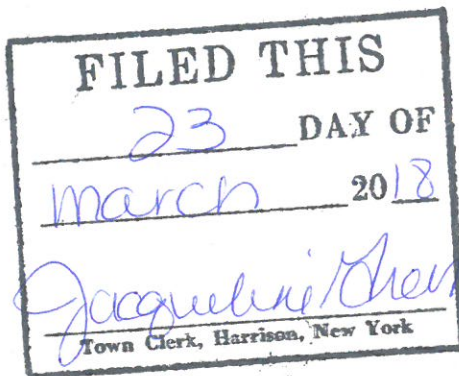 FILED THIS
23 DAY OF
march 2018
Jacqueline
Town Clerk, Harrison, New York